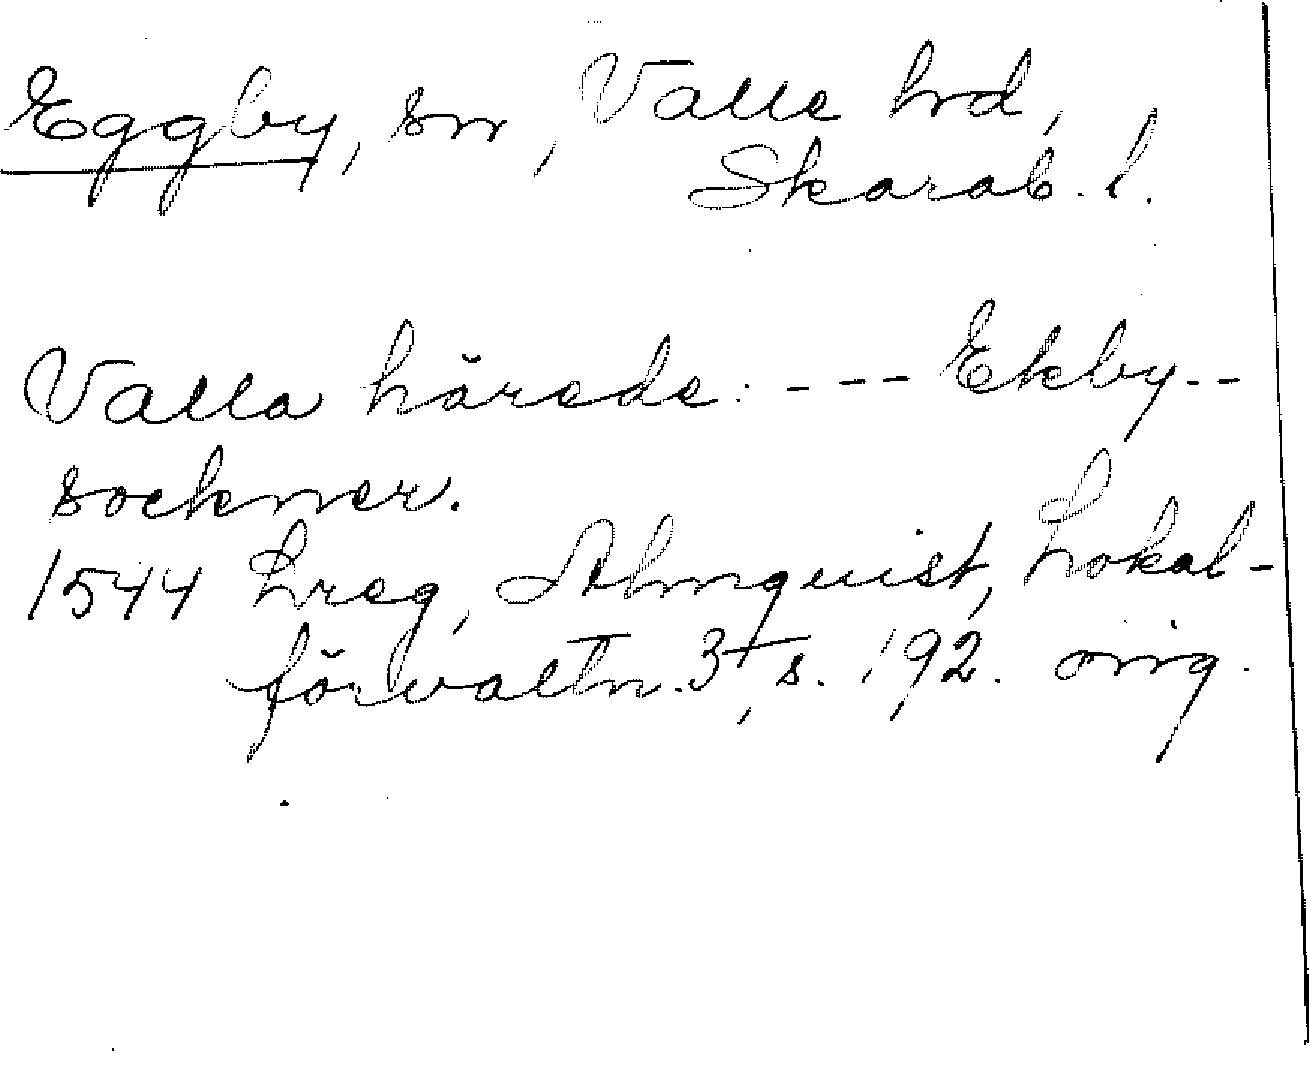 Eggby, sn, Valle hrd,
Skarab. l.
Valla härede: --- Ekby--
sockner.
1544 Lreg, Almquist, Lokal-
förvaltn. 3, s. 192. orig.